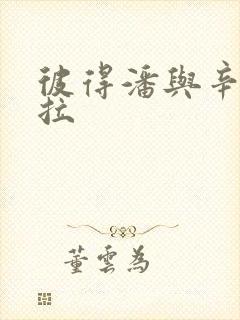 彼得潘與辛
拉
董雲為